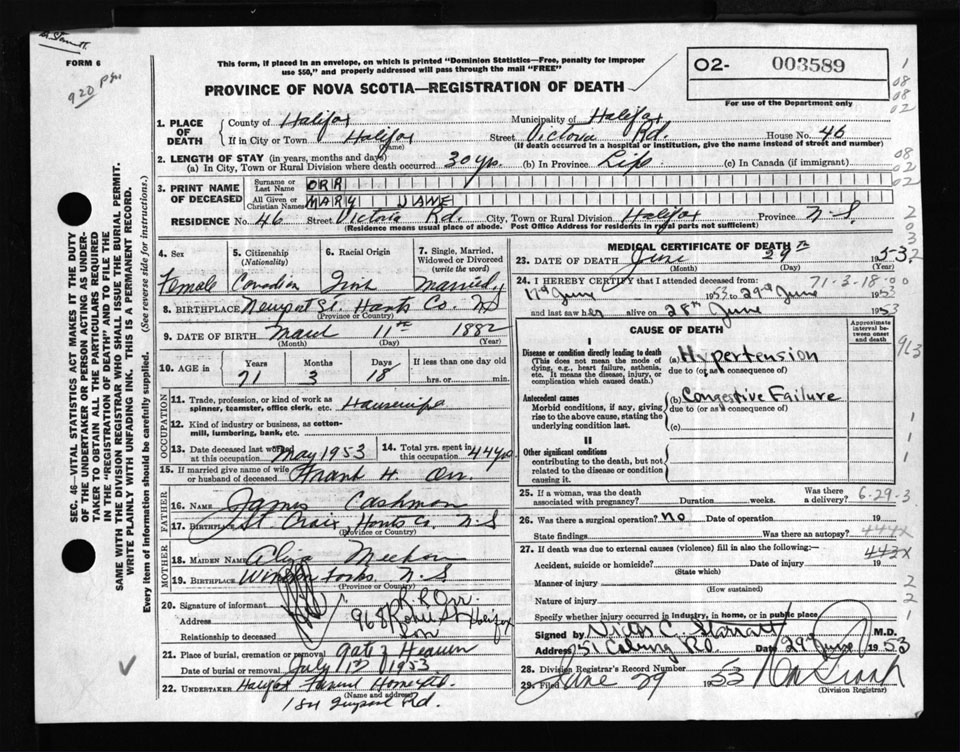 FORM 6
9 20 pm
This form, if placed in an envelope, on which is printed "Dominion Statistics—Free, penalty for improper
use $50," and properly addressed will pass through the mail "FREE"
PROVINCE OF NOVA SCOTIA—REGISTRATION OF DEATH
O2- 003589
For use of the Department only
1. PLACE OF DEATH
County of Halifax Municipality of Halifax
If in City or Town Halifax (Name) Street Victoria Rd. House No. 46
(If death occurred in a hospital or institution, give the name instead of street and number)
2. LENGTH OF STAY (in years, months and days)
(a) In City, Town or Rural Division where death occurred 30 yrs. (b) In Province Life (c) In Canada (if immigrant)
3. PRINT NAME OF DECEASED
Surname or Last Name ORR
All Given or Christian Names MARY JANE
RESIDENCE No. 46 Street Victoria Rd. City, Town or Rural Division Halifax Province N.S.
(Residence means usual place of abode. Post Office Address for residents in rural parts not sufficient)
4. Sex Female
5. Citizenship (Nationality) Canadian
6. Racial Origin Irish
7. Single, Married, Widowed or Divorced (write the word) Married
8. BIRTHPLACE Newport St. Hants Co. NS
(Province or Country)
9. DATE OF BIRTH March 11th 1882
(Month) (Day) (Year)
10. AGE in Years 71 Months 3 Days 18 If less than one day old hrs. or min.
OCCUPATION
11. Trade, profession, or kind of work as spinner, teamster, office clerk, etc. Housewife
12. Kind of industry or business, as cotton-mill, lumbering, bank, etc.
13. Date deceased last worked at this occupation May 1953
14. Total yrs. spent in this occupation 44 yrs
15. If married give name of wife or husband of deceased Frank H. Orr.
FATHER
16. NAME James Cashman
17. BIRTHPLACE St. Croix, Hants Co. N.S
(Province or Country)
MOTHER
18. MAIDEN NAME Eliza Meehan
19. BIRTHPLACE Windsor Forks, N.S
(Province or Country)
20. Signature of informant R. R. Orr.
Address 968 Robie St Halifax
Relationship to deceased Son
21. Place of burial, cremation or removal Gate of Heaven
Date of burial or removal July 1st 1953
22. UNDERTAKER Halifax Funeral Home Ltd.
(Name and address)
Rd.
MEDICAL CERTIFICATE OF DEATH
23. DATE OF DEATH June 29th 1953
(Month) (Day) (Year)
24. I HEREBY CERTIFY that I attended deceased from: 71-3-18
17th June 1953 to 29th June 1953
and last saw her alive on 28th June 1953
CAUSE OF DEATH
Approximate interval between onset and death
I
Disease or condition directly leading to death
(This does not mean the mode of dying, e.g., heart failure, asthenia, etc. It means the disease, injury, or complication which caused death.)
(a) Hypertension
due to (or as consequence of)
Antecedent causes
Morbid conditions, if any, giving rise to the above cause, stating the underlying condition last.
(b) Congestive Failure
due to (or as consequence of)
(c)
II
Other significant conditions
contributing to the death, but not related to the disease or condition causing it.
25. If a woman, was the death associated with pregnancy? Duration weeks. Was there a delivery? 6-29-3
26. Was there a surgical operation? no Date of operation 19
State findings Was there an autopsy?
27. If death was due to external causes (violence) fill in also the following:—
Accident, suicide or homicide? Date of injury 19
(State which)
Manner of injury
(How sustained)
Nature of injury
Specify whether injury occurred in industry, in home, or in public place
Signed by M.D.
Address 151 Coburg RD. Date 29th June 1953
28. Division Registrar's Record Number
29. Filed June 29 1953
(Division Registrar)
SEC. 46—VITAL STATISTICS ACT MAKES IT THE DUTY
OF THE UNDERTAKER OR PERSON ACTING AS UNDER-
TAKER TO OBTAIN ALL THE PARTICULARS REQUIRED
IN THE "REGISTRATION OF DEATH" AND TO FILE THE
SAME WITH THE DIVISION REGISTRAR WHO SHALL ISSUE THE BURIAL PERMIT.
WRITE PLAINLY WITH UNFADING INK. THIS IS A PERMANENT RECORD.
Every item of information should be carefully supplied. (See reverse side for instructions.)